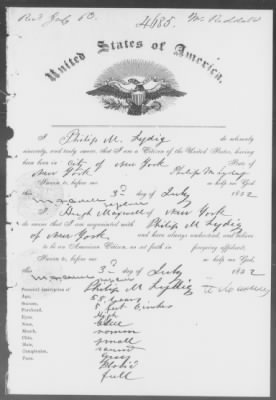 Recd July 6th 4685. Mr Reddall
United States of America.
I Philip M. Lydig do solemnly
sincerely, and truly swear, that I am a Citizen of the United States, having
been born in City of New York State of
New York Philip M Lydig
Sworn to, before me so help me God
this 3rd day of July 1852
I Hugh Maxwell of New York
do swear that I am acquainted with Philip M Lydig
of New York, and have always understood, and believe
to be an American Citizen, as set forth in foregoing affidavit,
Sworn to, before me so help me God
this 3rd day of July 1852
Personal description of Philip M. Lydig
Age, 53 years
Stature, 5 feet inches
Forehead, High
Eyes, Blue
Nose, roman
Mouth, small
Chin, round
Hair, Grey
Complexion, Florid
Face, full